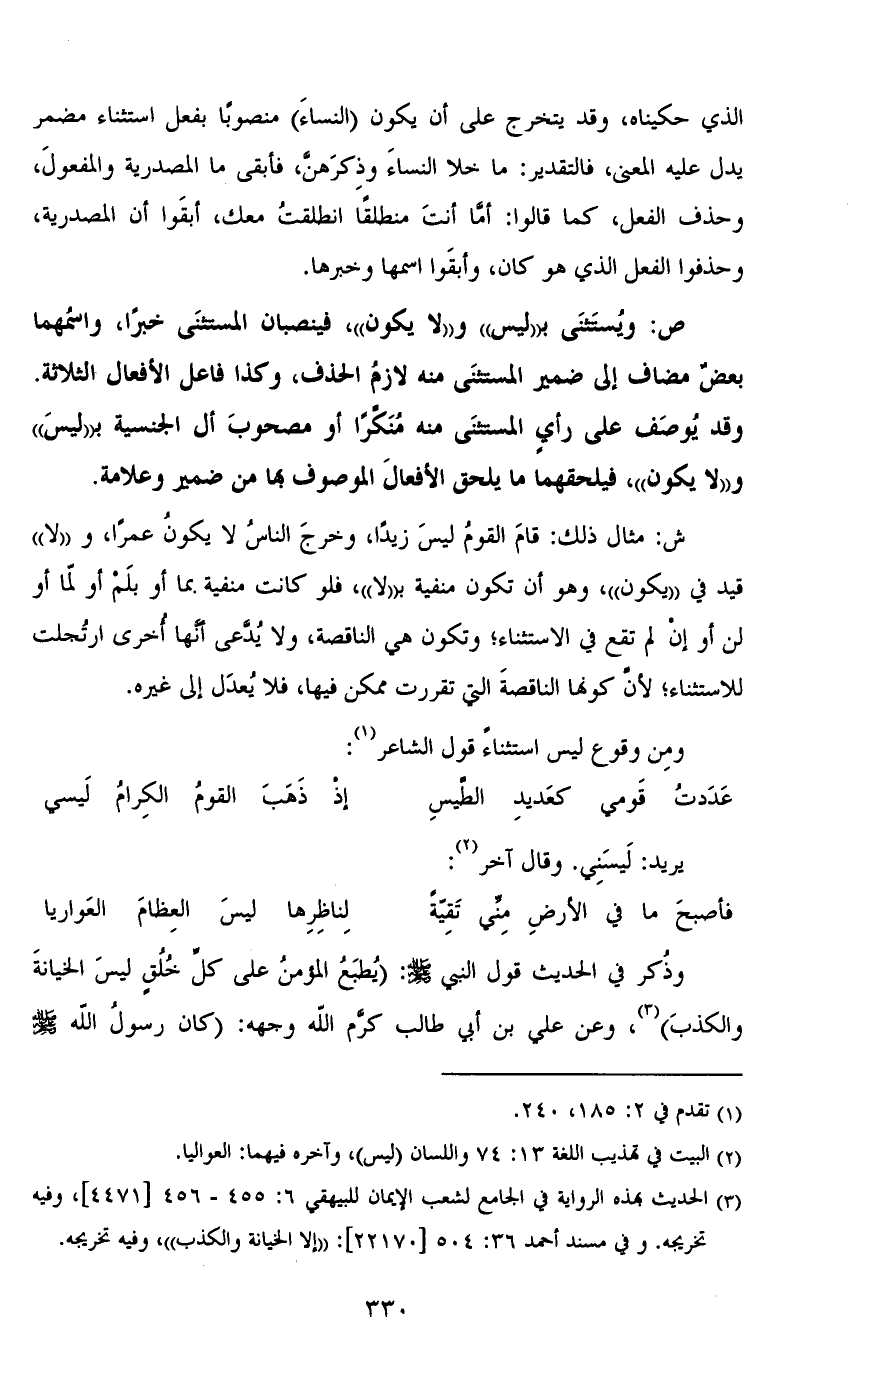 الذي حكيناه، وقد يتخرج على أن يكون (النساءَ) منصوبًا بفعل استثناء مضمر
يدل عليه المعنى، فالتقدير: ما خلا النساءَ وذِكرَهنَّ، فأبقى ما المصدرية والمفعولَ،
وحذف الفعل، كما قالوا: أمَّا أنتَ منطلقًا انطلقتُ معك، أبقَوا أن المصدرية،
وحذفوا الفعل الذي هو كان، وأبقَوا اسمها وخبرها.
ص: ويُستَثنَى بـ((ليس)) و((لا يكون))، فينصبان المستثنَى خبرًا، واسمُهما
بعضٌ مضاف إلى ضمير المستثنَى منه لازمُ الحذف، وكذا فاعل الأفعال الثلاثة.
وقد يُوصَف على رأيٍ المستثنَى منه مُنَكَّرًا أو مصحوبَ أل الجنسية بـ((ليسَ))
و((لا يكون))، فيلحقهما ما يلحق الأفعالَ الموصوف بها من ضمير وعلامة.
ش: مثال ذلك: قامَ القومُ ليسَ زيدًا، وخرجَ الناسُ لا يكونُ عمرًا، و ((لا))
قيد في ((يكون))، وهو أن تكون منفية بـ((لا))، فلو كانت منفية بما أو بلَمْ أو لمّا أو
لن أو إنْ لم تقع في الاستثناء؛ وتكون هي الناقصة، ولا يُدَّعى أنَّها أُخرى ارتُجلت
للاستثناء؛ لأنَّ كونها الناقصةَ التي تقررت ممكن فيها، فلا يُعدَل إلى غيره.
ومِن وقوع ليس استثناءً قول الشاعر(١):
عَدَدتُ قَومي كعَديدِ الطَّيسِ إذْ ذَهَبَ القومُ الكِرامُ لَيسي
يريد: لَيسَنِي. وقال آخر(٢):
فأصبحَ ما في الأرضِ مِنِّي تَقِيّةً لِناظِرِها ليسَ العِظامَ العَواريا
وذُكر في الحديث قول النبي ﷺ: (يُطبَعُ المؤمنُ على كلِّ خُلُقٍ ليسَ الخيانةَ
والكذبَ)(٣)، وعن علي بن أبي طالب كرَّم اللّه وجهه: (كان رسولُ اللّه ﷺ
(١) تقدم في ٢: ١٨٥، ٢٤٠.
(٢) البيت في تهذيب اللغة ١٣: ٧٤ واللسان (ليس)، وآخره فيهما: العواليا.
(٣) الحديث بهذه الرواية في الجامع لشعب الإيمان للبيهقي ٦: ٤٥٥ - ٤٥٦ [٤٤٧١]، وفيه
تخريجه. و في مسند أحمد ٣٦: ٥٠٤ [٢٢١٧٠]: ((إلا الخيانة والكذب))، وفيه تخريجه.
٣٣٠